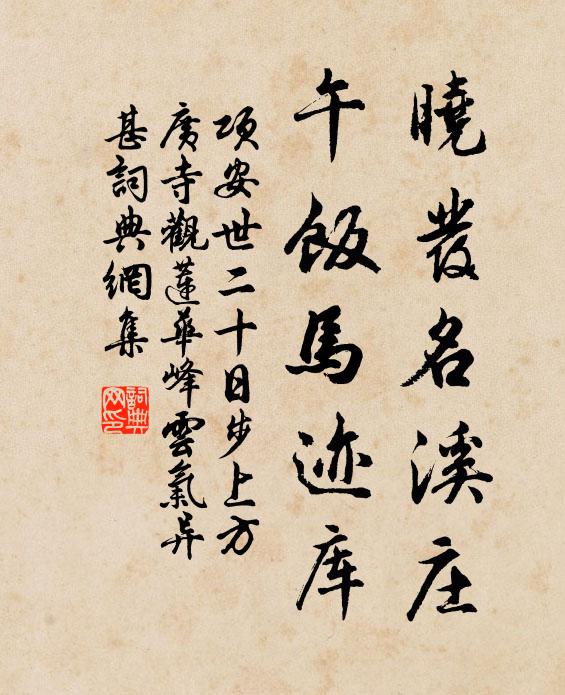 曉發名溪庄
午飯馬迹库
项安世二十日步上方
廣寺觀蓮華峰雲氣异
甚詞典網集
詞典网印